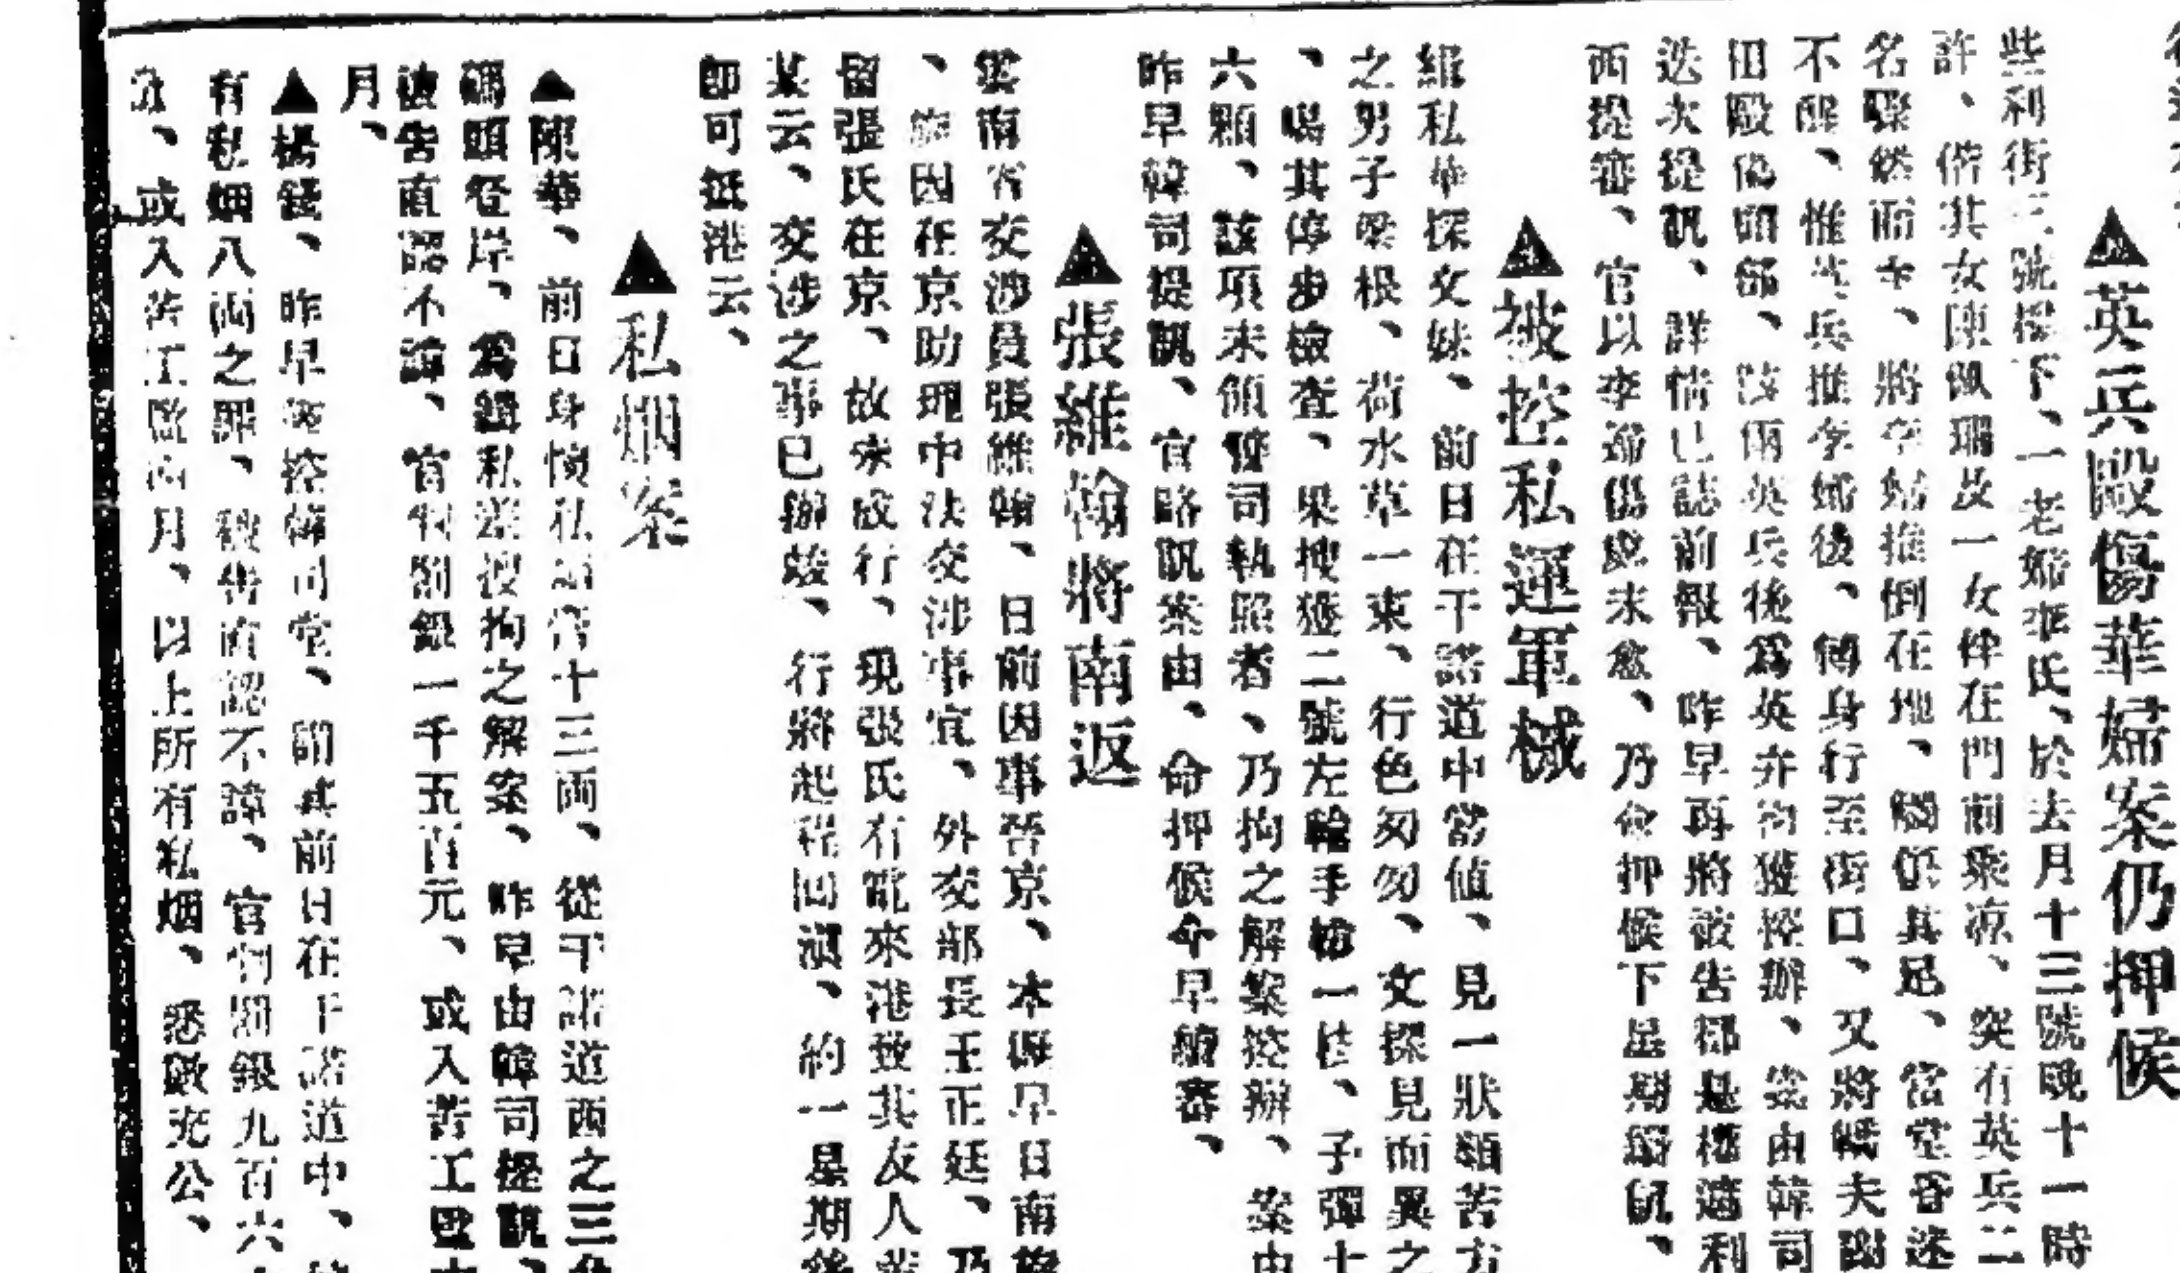 ▲英兵毆傷華婦案仍押候
些利街三號樓下、一老婦張氏、於去月十三號晚十一時
許、偕其女陳佩瓊及一女伴在門前乘凉、突有英兵二
名驟然而來、將李婦推倒在地、觸傷其足、當堂昏迷
不醒、惟英兵推李婦後、轉身行至街口、又將轎夫謝
田毆傷頭部、該兩英兵後爲英弁拘獲控辦、案由韓司
迭次提訊、詳情已誌前報、昨早再將被告 利
西提審、官以李婦傷處未愈、乃令押候下星期 訊、
▲被控私運軍械
緝私華探文妹、前日在干諾道中當値、見一狀類苦力
之男子梁根、荷水草一束、行色匆匆、文探見而異之
、喝其停步檢查、果搜獲二號左輪手鎗一枝、子彈十
六顆、該項未領 司執照者、乃拘之解案控辦、案由
昨早韓司提訊、官略訊案由、命押候今早續審、
▲張維翰將南返
雲南省交涉員張維翰、日前因事晉京、本擬早日南旋
、旋因在京助理中法交涉事宜、外交部長王正廷、乃
留張氏在京、故未成行、現張氏有電來港致其友人
某云、交涉之事已辦竣、行將起程回滇、約一星期後
卽可抵港云、
▲私烟案
▲陳華、前日身懷私烟膏十三両、從干諾道西之三角
碼頭登岸、爲緝私差搜拘之解案、昨早由韓司提訊、
被告直認不諱、官判罰銀一千五百元、或入苦工監
月、
▲楊錢、昨早被控韓司堂、謂其前日在干諾道中、
有私烟八両之罪、被告直認不諱、官判罰銀九百六
、或入苦工監 月、以上所有私烟、悉數充公、